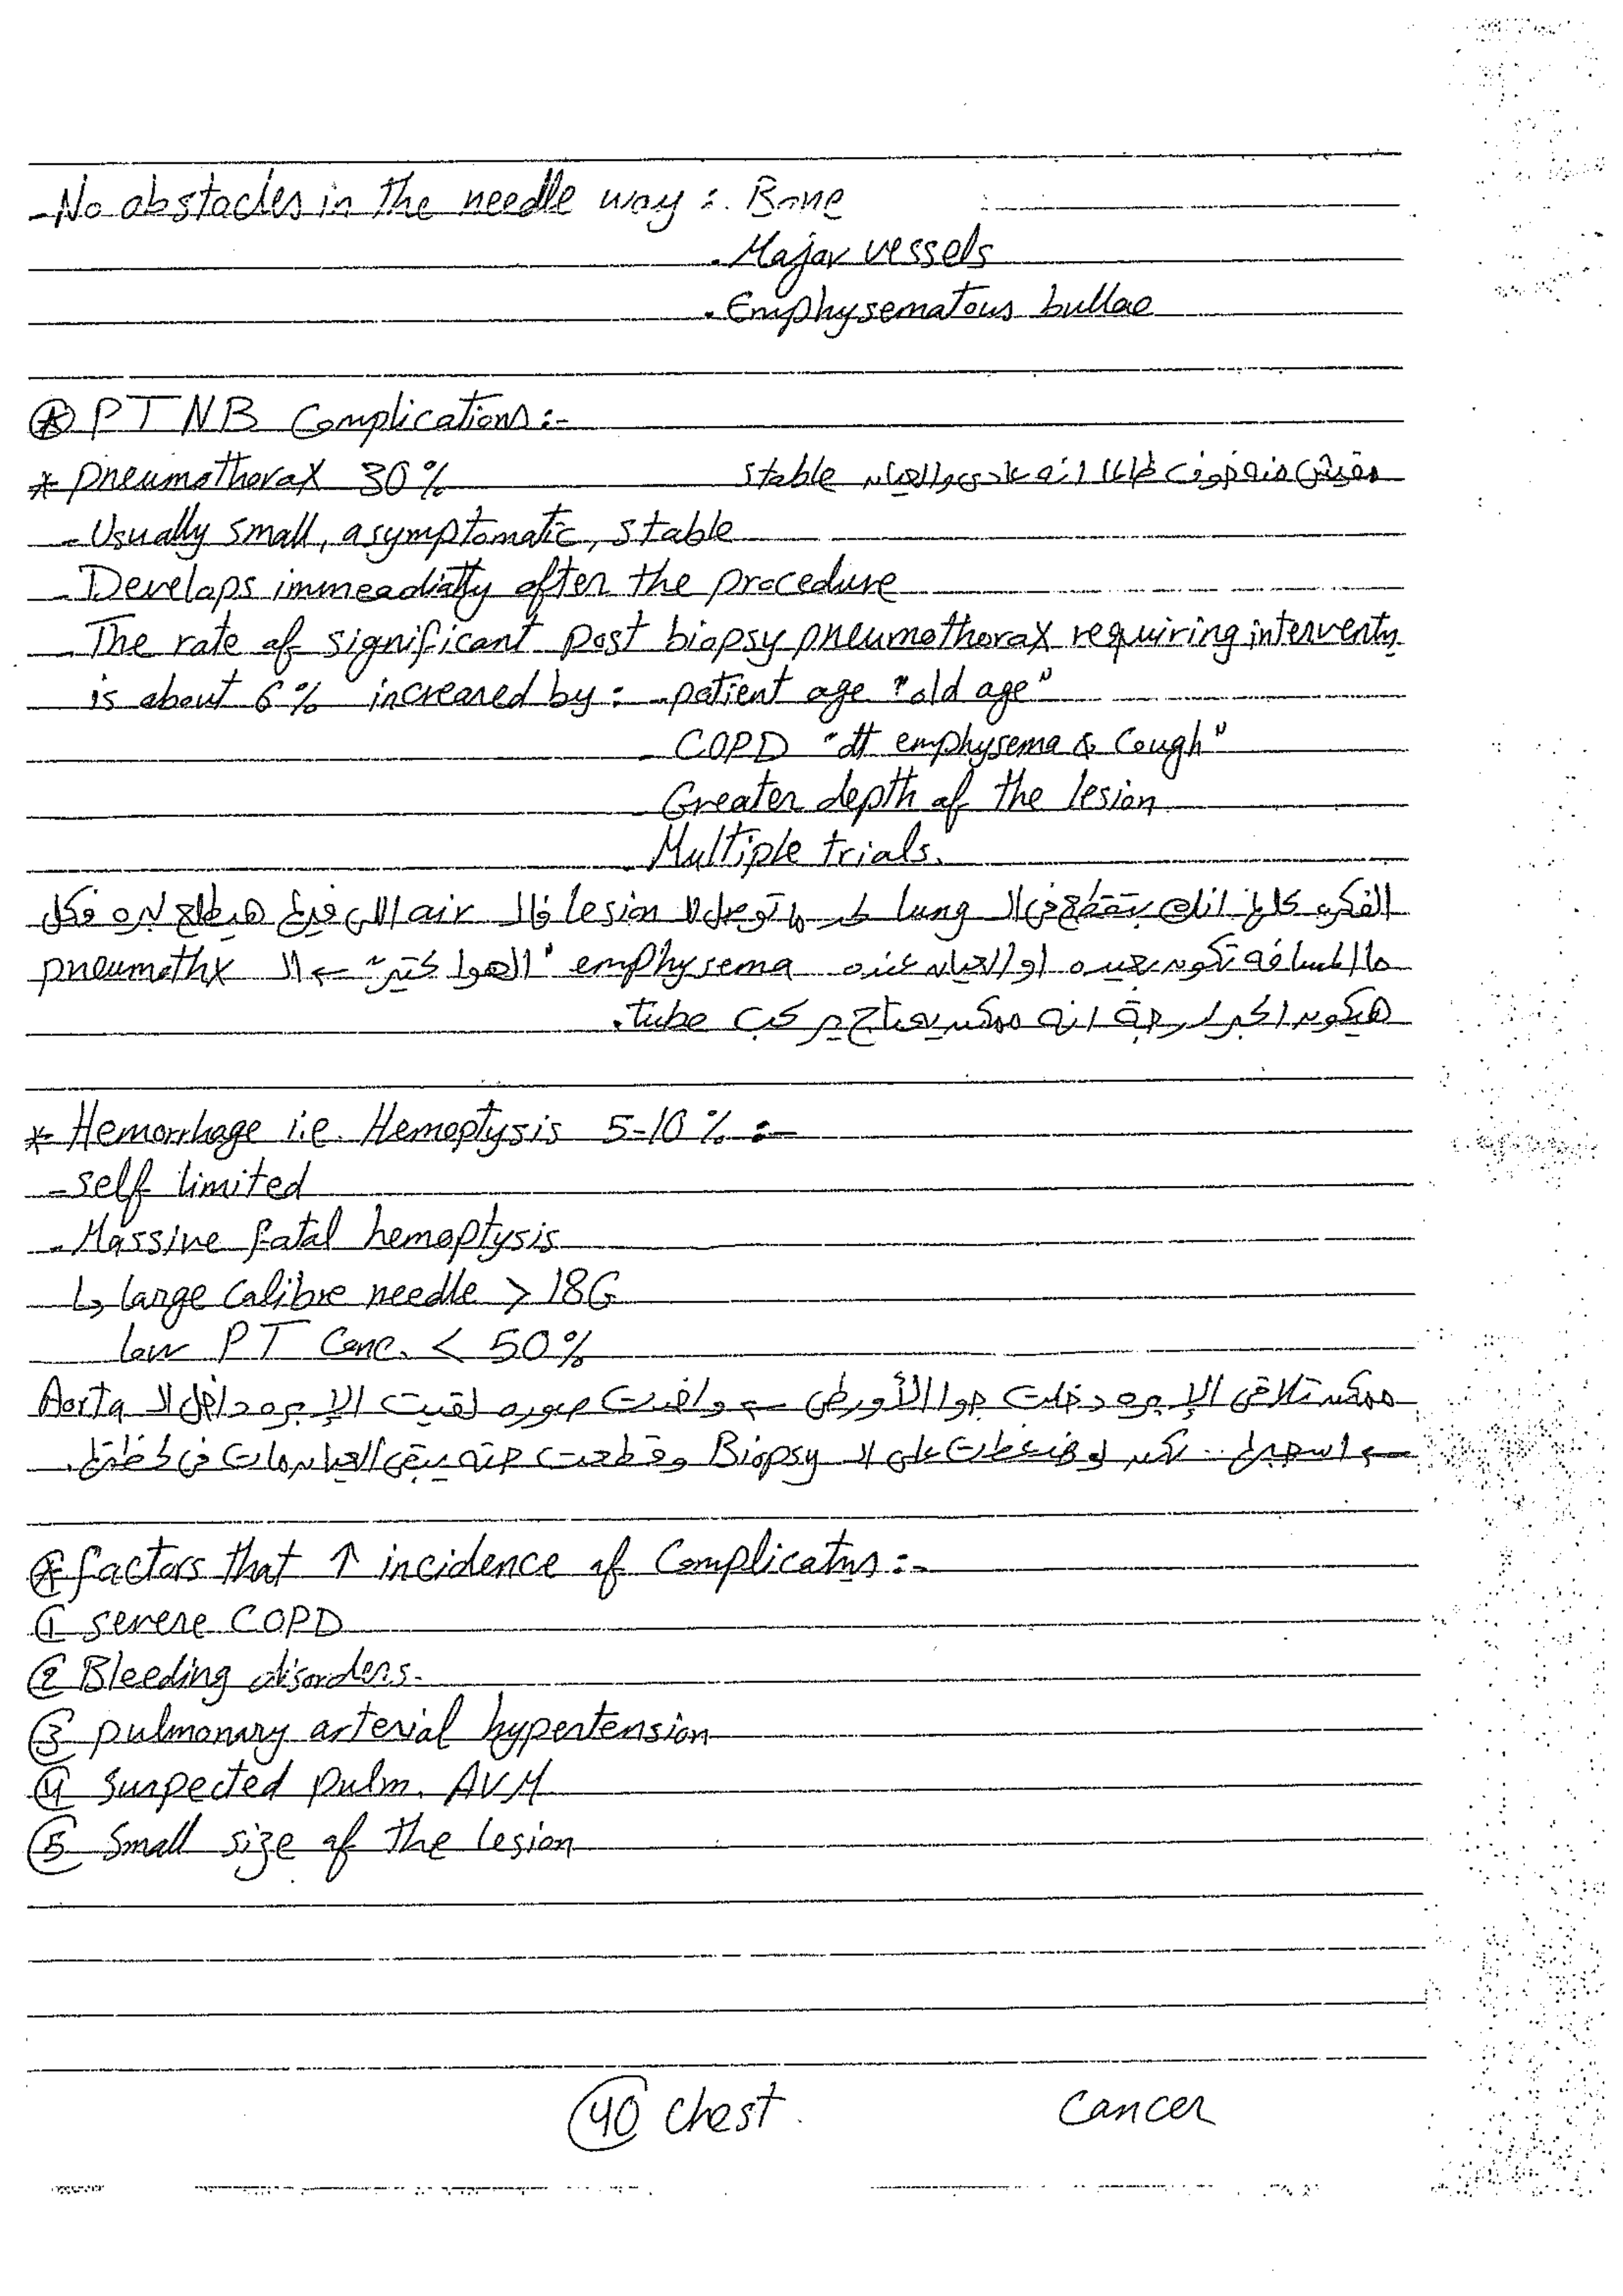 - No obstacles in the needle way : . Bone
. Major vessels
. Emphysematous bullae
* PTNB Complications :-
* pneumothorax 30% مفيش منه خوف طالما انه عادي والعيان stable
- Usually small, asymptomatic, stable
- Develops immeadiatly after the procedure
- The rate of significant post biopsy pneumothorax requiring interventn
is about 6% increased by : - patient age "old age"
- COPD "dt emphysema & Cough"
- Greater depth of the lesion
. Multiple trials.
الفكره كلها انك بتقطع في ال lung لحد ما توصل لا lesion فال air اللي فيها هيطلع بره فكل
ما المسافه تكون بعيده او العيان عنده emphysema "الهوا كتير" ← الا pneumothx
هيكون اكبر لدرجة انه ممكن يحتاج يركب tube.
* Hemorrhage i.e. Hemoptysis 5-10% :-
- self limited
- Massive fatal hemoptysis
↳ large calibre needle > 18G
low PT Conc. < 50%
ممكن تلاقي الإبره دخلت جوا الأورطي ← واخدت صوره لقيت الإبره داخل الا Aorta
← اسحبها .. لكن لو ضغطت على الا Biopsy وقطعت حته يبقى العيان مات في لحظتها.
* factors that ↑ incidence of Complicatns :-
① severe COPD
② Bleeding disorders.
③ pulmonary arterial hypertension
④ suspected pulm. AVM
⑤ Small size of the lesion
40 Chest Cancer